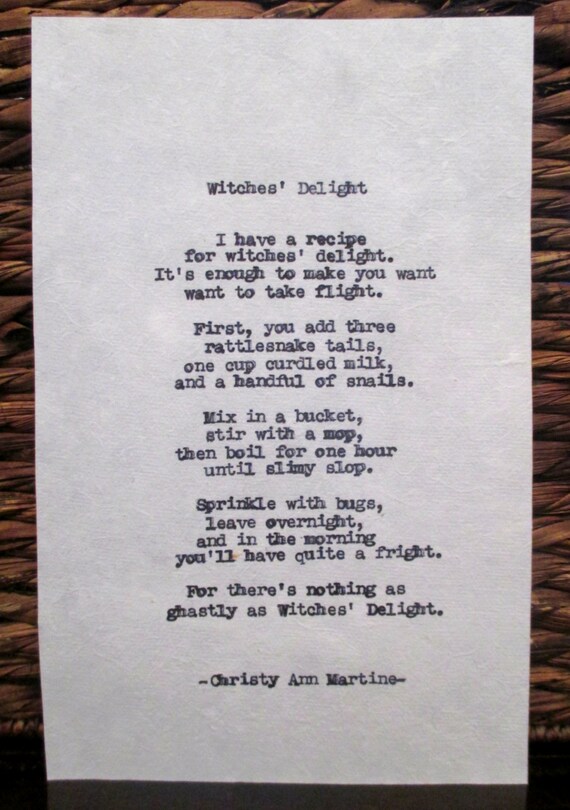 Witches' Delight
I have a recipe
for witches' delight.
It's enough to make you want
want to take flight.
First, you add three
rattlesnake tails,
one cup curdled milk,
and a handful of snails.
Mix in a bucket,
stir with a mop,
then boil for one hour
until slimy slop.
Sprinkle with bugs,
leave overnight,
and in the morning
you'll have quite a fright.
For there's nothing as
ghastly as Witches' Delight.
-Christy Ann Martine-